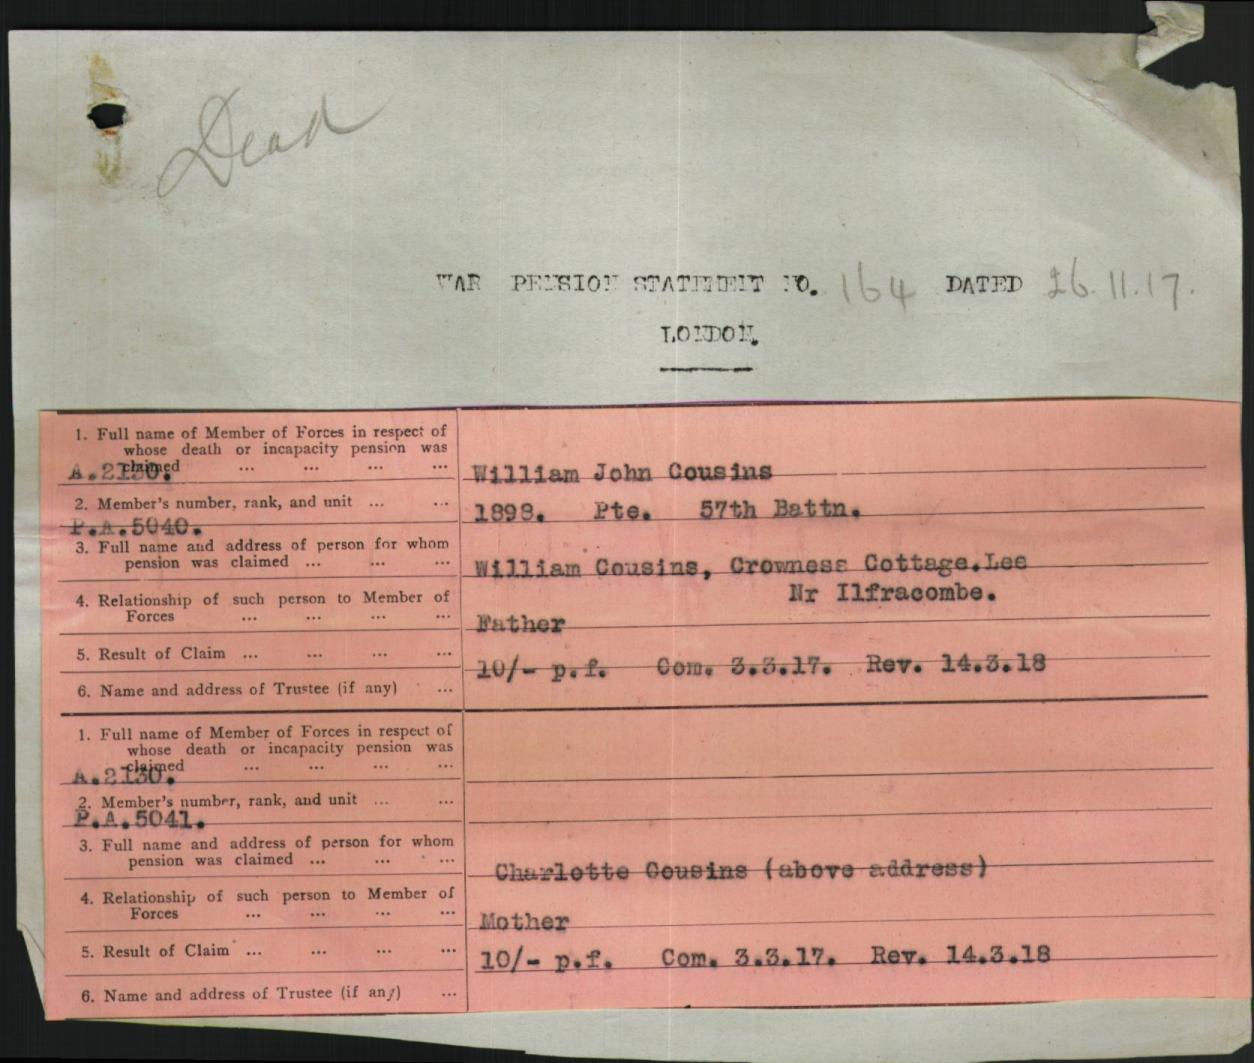 Dead
WAR PENSION STATEMENT NO. 164 DATED 26.11.17.
LONDON.
1. Full name of Member of Forces in respect of
whose death or incapacity pension was
claimed ... ... ... ...
A.2130.
William John Cousins
2. Member's number, rank, and unit ... ...
1898. Pte. 57th Battn.
P.A.5040.
3. Full name and address of person for whom
pension was claimed ... ... ...
William Cousins, Crowness Cottage.Lee
Nr Ilfracombe.
4. Relationship of such person to Member of
Forces ... ... ... ...
Father
5. Result of Claim ... ... ... ...
10/- p.f. Com. 3.3.17. Rev. 14.3.18
6. Name and address of Trustee (if any) ...
1. Full name of Member of Forces in respect of
whose death or incapacity pension was
claimed ... ... ... ...
A.2130.
2. Member's number, rank, and unit ... ...
P.A.5041.
3. Full name and address of person for whom
pension was claimed ... ... ...
Charlotte Cousins (above address)
4. Relationship of such person to Member of
Forces ... ... ... ...
Mother
5. Result of Claim ... ... ... ...
10/- p.f. Com. 3.3.17. Rev. 14.3.18
6. Name and address of Trustee (if any) ...